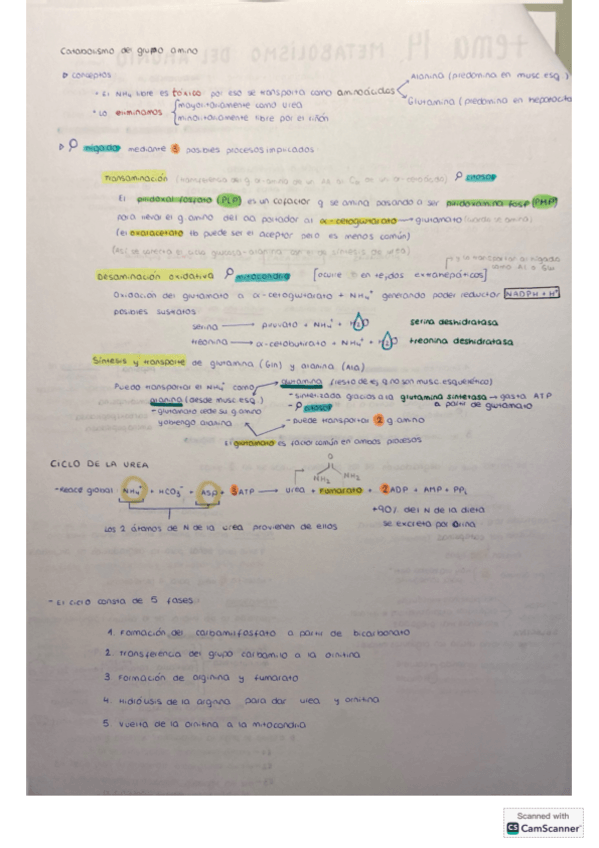 Catabolismo del grupo amino
conceptos
• El NH4 libre es tóxico por eso se transporta como aminoácidos
Alanina (predomina en musc esq.)
Glutamina (predomina en hepatocito
• Lo eliminamos
mayoritariamente como urea
minoritariamente libre por el riñón
Hígado mediante 3 posibles procesos implicados
Transaminación
citosol
El piridoxal fosfato (PLP) es un cofactor q se amina pasando a ser piridoxamina fosf (PMP)
para llevar el g. amino del aa portador al α-cetoglutarato → glutamato
(el oxalacetato tb puede ser el aceptor pero es menos común)
Desaminación oxidativa mitocondria [ocurre tb en tejidos extrahepáticos]
Oxidación del glutamato a α-cetoglutarato + NH4+ generando poder reductor NADPH + H+
posibles sustratos
serina → piruvato + NH4+ + H2O serina deshidratasa
treonina → α-cetobutirato + NH4+ + H2O treonina deshidratasa
Síntesis y transporte de glutamina (Gln) y alanina (Ala)
Puedo transportar el NH4+ como
glutamina (resto de cel q no son musc. esquelético)
alanina (desde musc esq)
- sintetizada gracias a la glutamina sintetasa → gasta ATP
a partir de glutamato
- glutamato cede su g. amino
y obtengo alanina
- citosol
- puede transportar 2 g. amino
El glutamato es factor común en ambos procesos
CICLO DE LA UREA
O
NH2 NH2
- Reacc global: NH4+ + HCO3- + Asp + 3 ATP → Urea + Fumarato + 2 ADP + AMP + PPi
Los 2 átomos de N de la urea provienen de ellos
+90% del N de la dieta
se excreta por orina
- El ciclo consta de 5 fases
1. Formación del carbamilfosfato a partir de bicarbonato
2. Transferencia del grupo carbamilo a la ornitina
3. Formación de arginina y fumarato
4. Hidrólisis de la arginina para dar urea y ornitina
5. Vuelta de la ornitina a la mitocondria
Scanned with
CS CamScanner